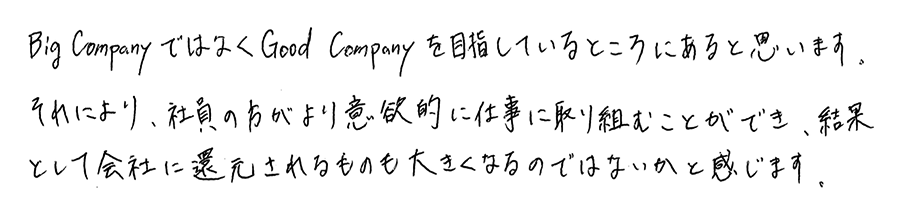 Big CompanyではなくGood Companyを目指しているところにあると思います。
それにより、社員の方がより意欲的に仕事に取り組むことができ、結果
として会社に還元されるものも大きくなるのではないかと感じます。